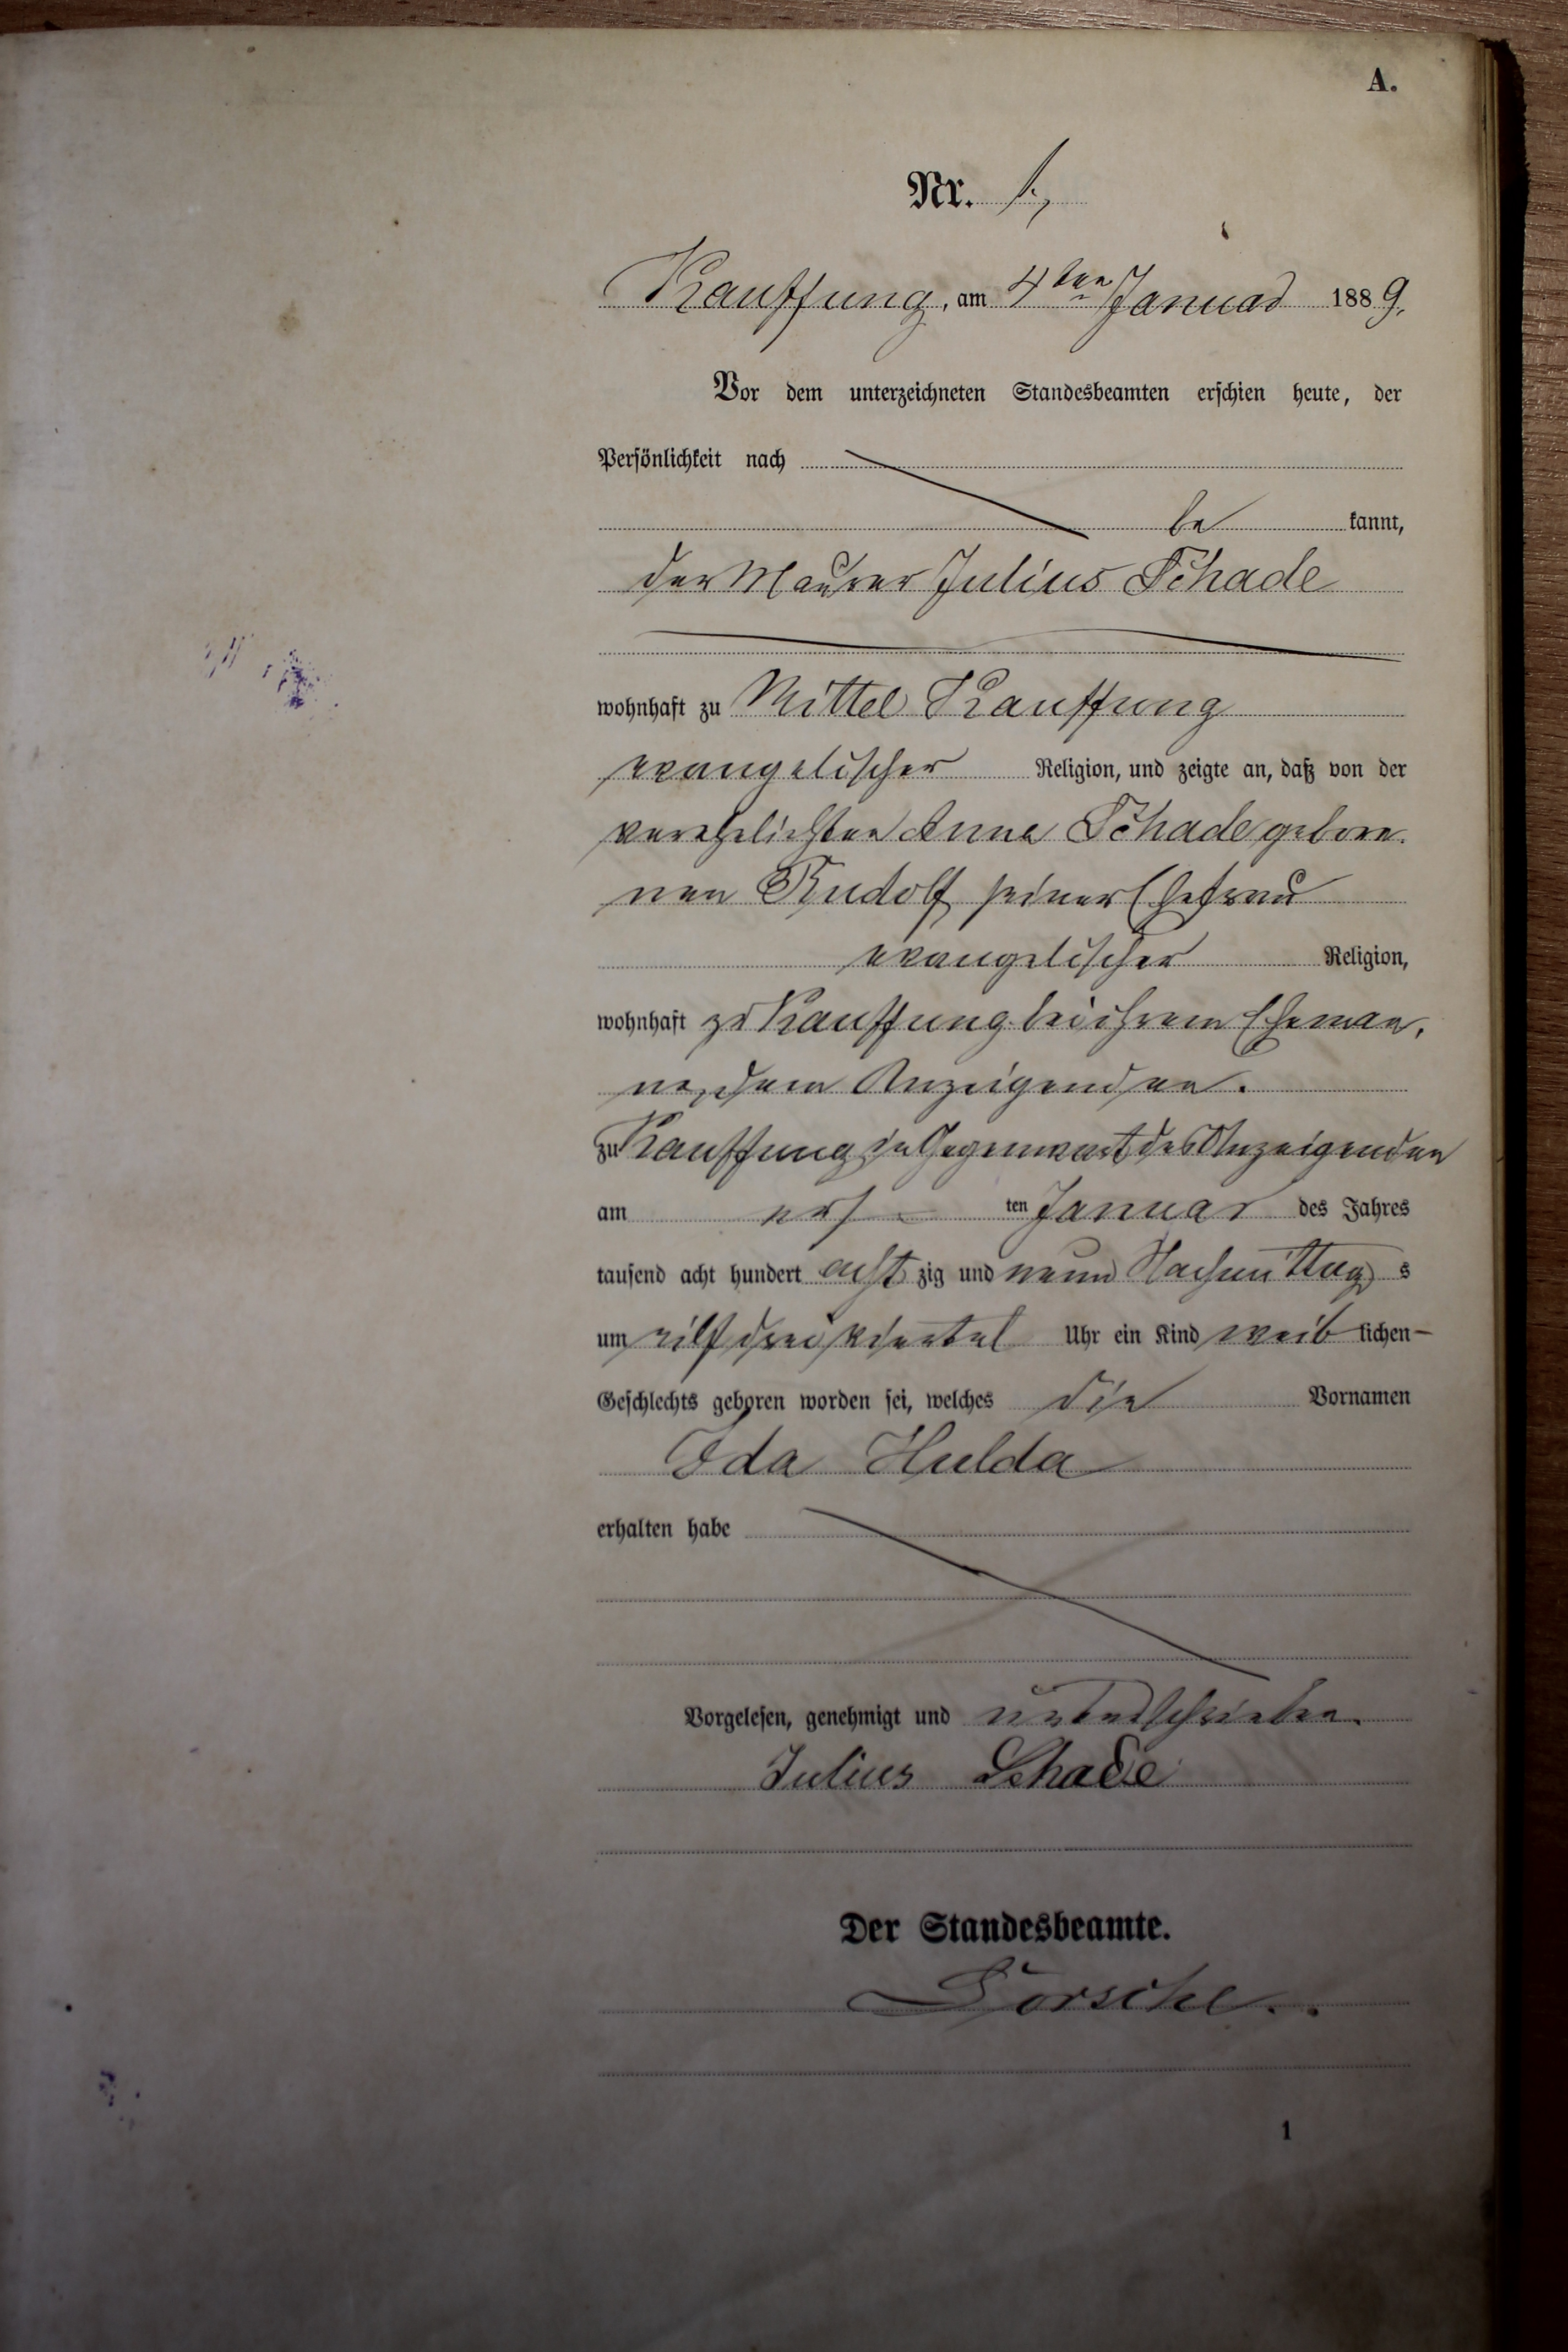 A.
Nr. 1.,
Kauffung, am 4ten Januar 1889.
Vor dem unterzeichneten Standesbeamten erschien heute, der
Persönlichkeit nach
be kannt,
der Maurer Julius Schade
wohnhaft zu Mittel Kauffung
evangelischer Religion, und zeigte an, daß von der
verehelichten Anna Schade gebore-
nen Rudolf seiner Ehefrau
evangelischer Religion,
wohnhaft zu Kauffung bei ihrem Eheman,
ne, dem Anzeigenden.
zu Kauffung in Gegenwart des Anzeigenden
am ers ten Januar des Jahres
tausend acht hundert acht zig und neun Nachmittag s
um eilf drei viertel Uhr ein Kind weib lichen
Geschlechts geboren worden sei, welches die Vornamen
Ida Hulda
erhalten habe
Vorgelesen, genehmigt und unterschrieben.
Julius Schade
Der Standesbeamte.
1